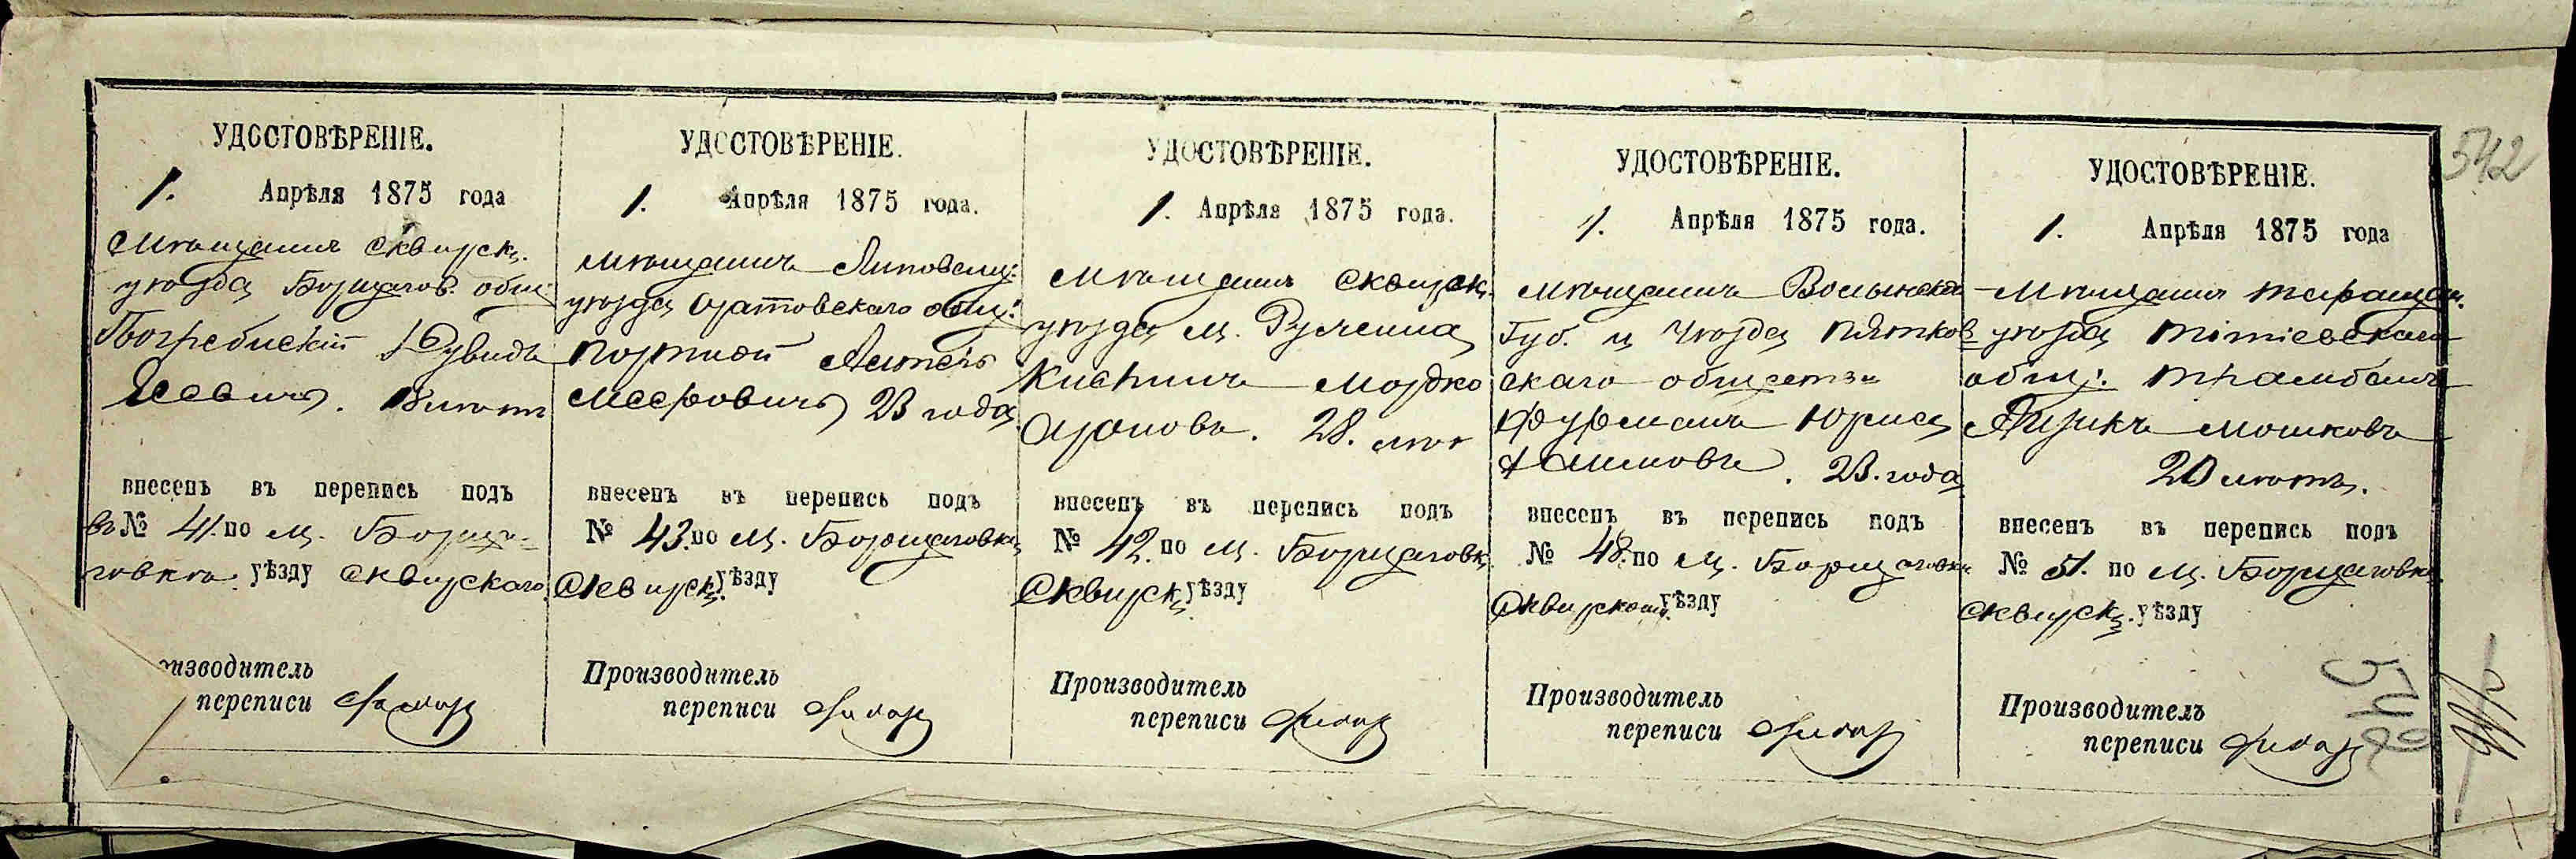 542
УДОСТОВѢРЕНІЕ.
1. Апрѣля 1875 года
Мѣщанинъ Сквирск.
уѣзда Борщагов. общ:
Погребискій Дувидъ
18 лѣтъ
внесенъ въ перепись подъ
въ № 41. по м. Борща-
говкѣ уѣзду Сквирскаго
Производитель
переписи
УДОСТОВѢРЕНІЕ.
1. Апрѣля 1875 года.
Мѣщанинъ Липовец:
уѣзда Оратовскаго общ:
Портной
Мееровичъ 23 года
внесенъ въ перепись подъ
№ 43. по м. Борщаговкѣ
Сквирск. уѣзду
Производитель
переписи
УДОСТОВѢРЕНІЕ.
1. Апрѣля 1875 года.
Мѣщанинъ Сквирск.
уѣзда м. Ружина
Мордко
Ароновъ. 28. лѣт
внесенъ въ перепись подъ
№ 42. по м. Борщаговк.
Сквирск. уѣзду
Производитель
переписи
УДОСТОВѢРЕНІЕ.
1. Апрѣля 1875 года.
Мѣщанинъ Волынской
Губ. и Уѣзда Пятков
скаго общества
Фурманъ
23. года
внесенъ въ перепись подъ
№ 48. по м. Борщаговкѣ
Сквирском. уѣзду
Производитель
переписи
УДОСТОВѢРЕНІЕ.
1. Апрѣля 1875 года
Мѣщанинъ Таращан.
уѣзда Тетіевскаго
общ:
Айзикъ Мошковъ
20 лѣтъ.
внесенъ въ перепись подъ
№ 51. по м. Борщаговкѣ
Сквирск. уѣзду
Производитель
переписи
542